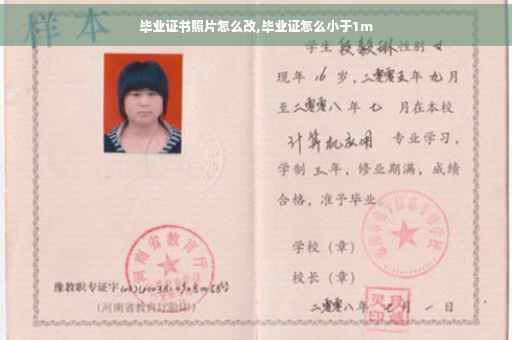 毕业证书照片怎么改,毕业证怎么小于1m
样本
学生段毅琳性别女
现年16岁,二零零五年九月
至二零零八年七月在本校
计算机应用 专业学习,
学制三年,修业期满,成绩
合格,准予毕业
学校(章)
校长(章)
二零零八年七月一日
河南省教育厅
豫教职专证字
(河南省教育厅验印)